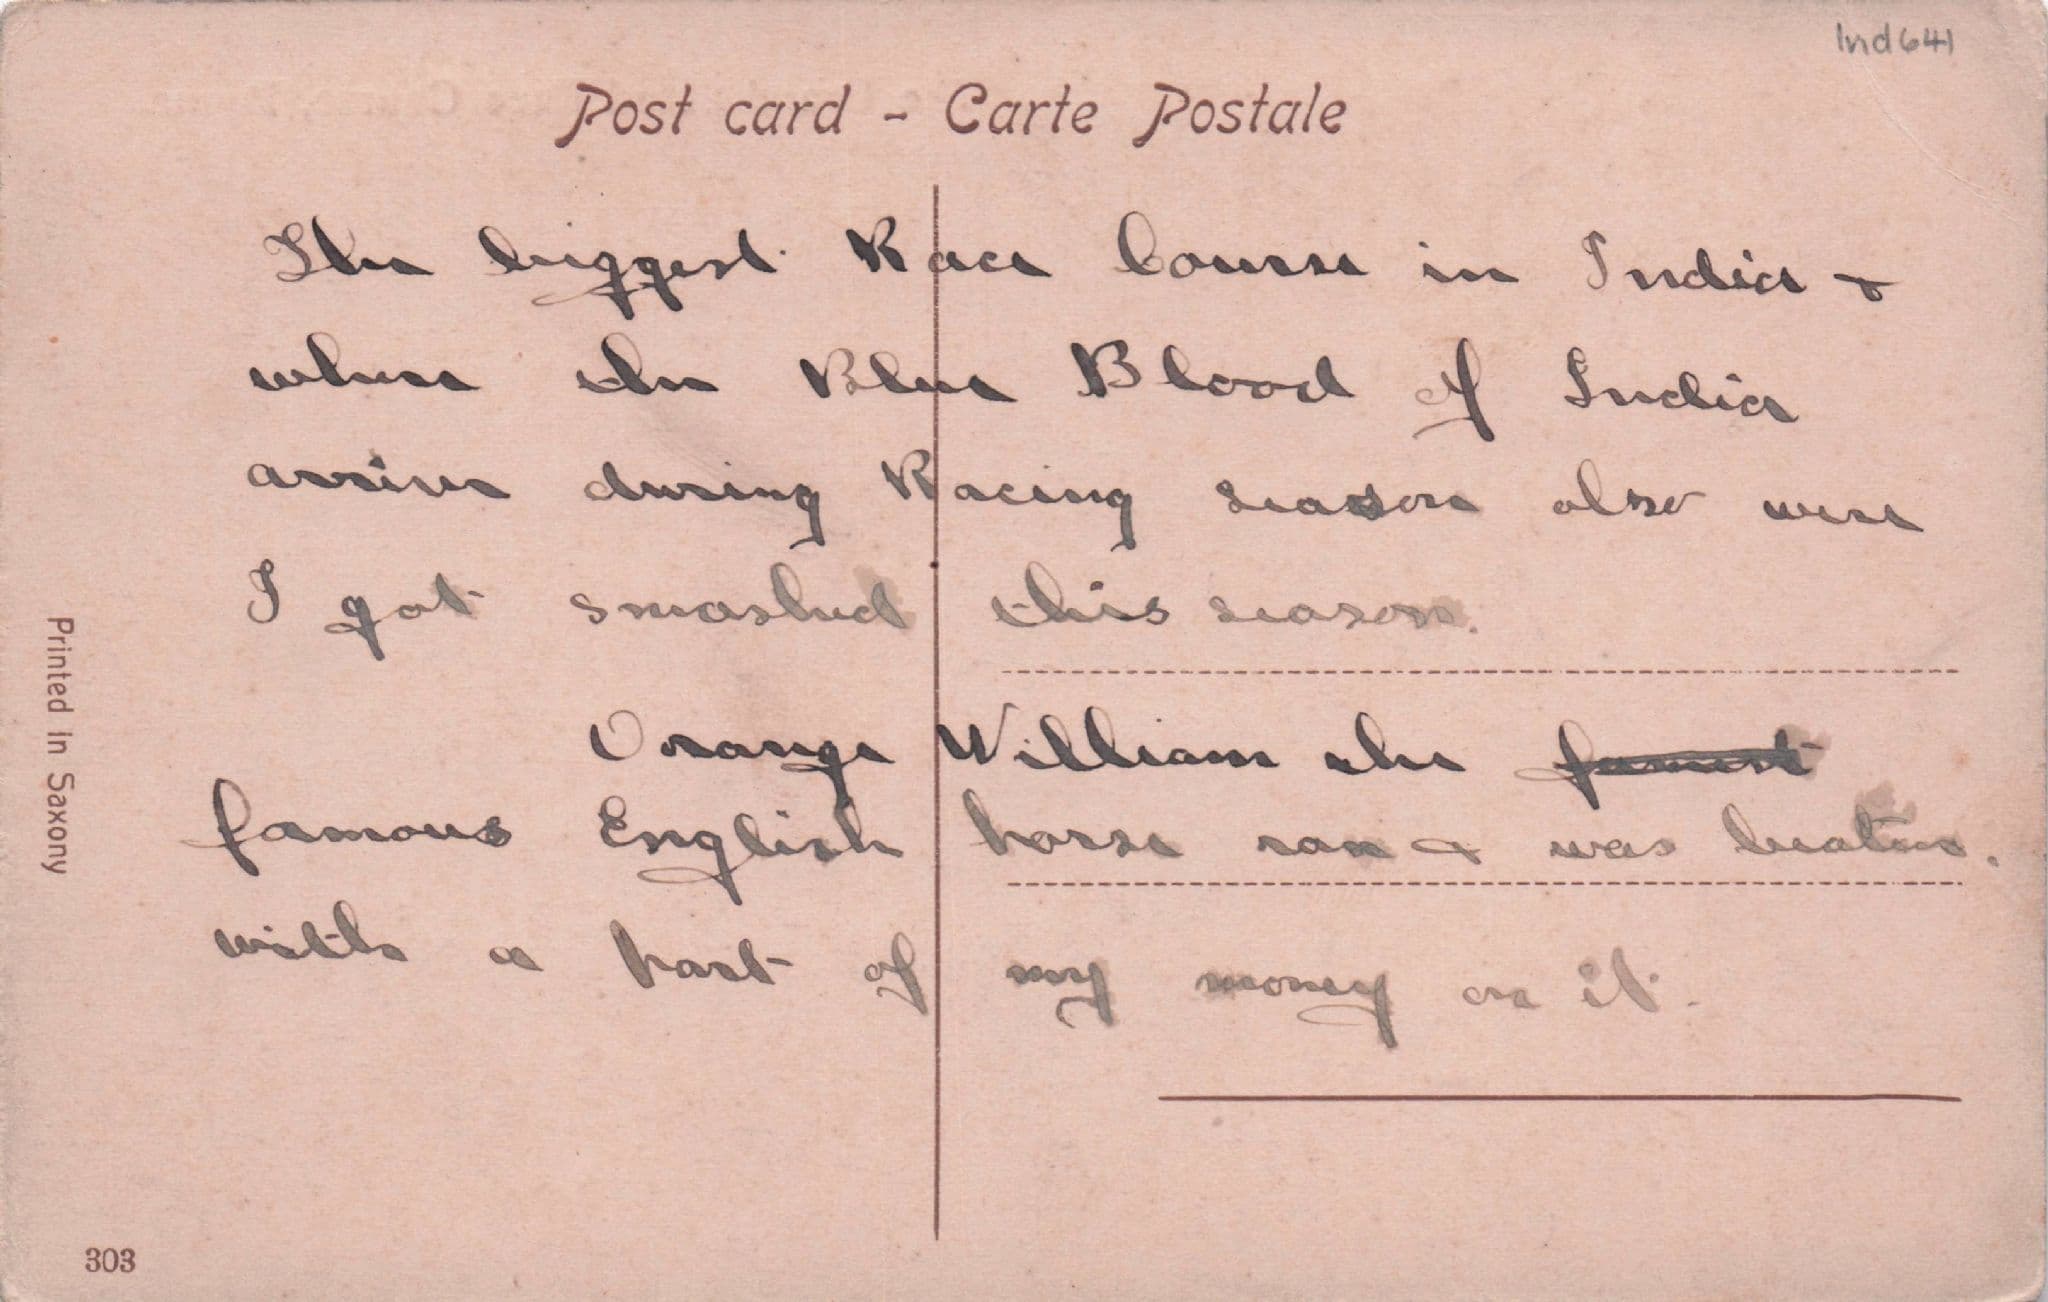 Ind641
Post card - Carte Postale
The biggest Race Course in India &
where the Blue Blood of India
arrives during Racing season also were
I got smashed this season.
Orange William the
famous English horse ran & was beaten.
with a part of my money on it.
Printed in Saxony
303